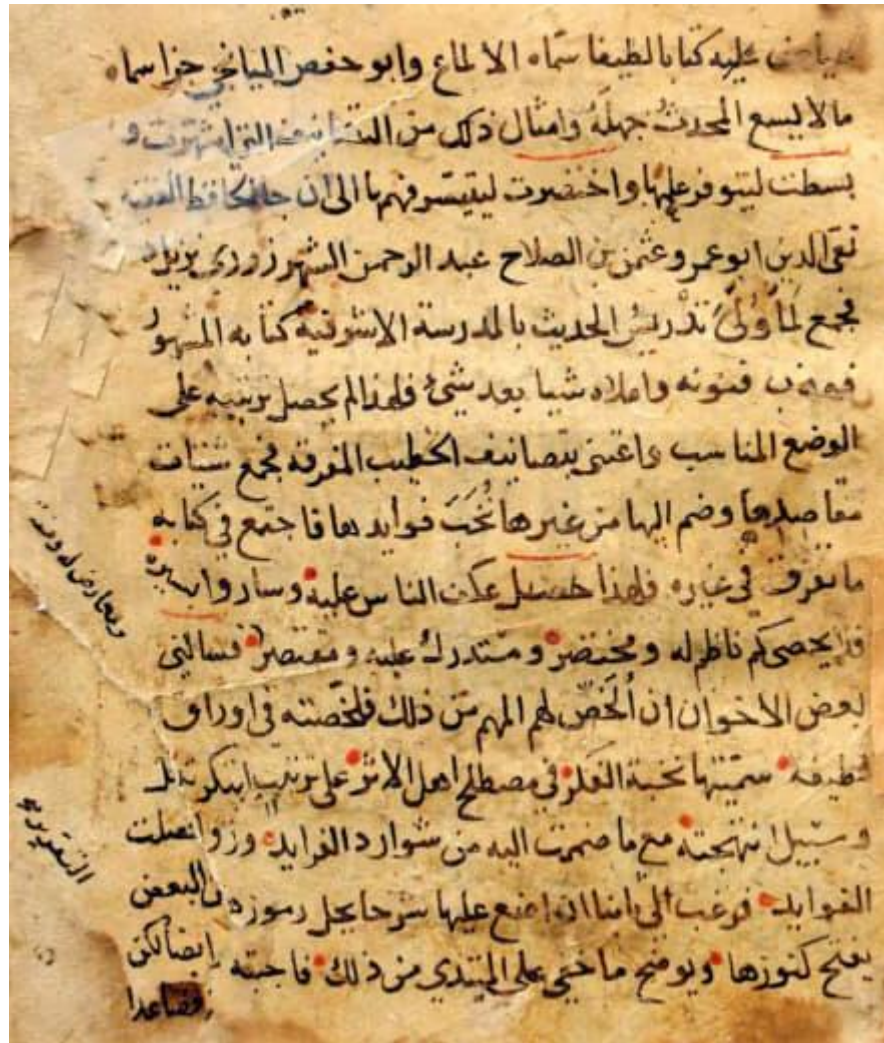 عياض عليه كتابا لطيفا سماه الالماع وابو حفص الميانجي جزا سماه
مالا يسع المحدث جهله وامثال ذلك من التصانيف التي اشتهرت و
بسطت ليتوفر علمها واختصرت ليتيسر فهمها الى ان جا الحافظ الفقيه
تقى الدين ابو عمرو عثمن بن الصلاح عبد الرحمن الشهرزوري نزيل
فجمع لما وُلّى تدريس الحديث بالمدرسة الاشرفية كتابه المشهور
فهذب فنونه واملاه شيا بعد شيئ فلهذا لم يحصل ترتيبه على
الوضع المناسب واعتنى بتصانيف الخطيب المفرقه فجمع شتات
مقاصدها وضم اليها من غيرها نُخَبَ فوايدها فاجتمع في كتابه
ما تفرق في غيره فلهذا عكف الناس عليه وساروا بسيره
فلا يحصى كم ناظم له ومختصر ومستدرك عليه ومقتصر فسالنى
بعض الاخوان ان اُلخّص لهم المهم من ذلك فلخصته في اوراق
لطيفه سميتها نخبة الفكر في مصطلح اهل الاثر على ترتيب ابتكرته
وسبيل انتهجته مع ما ضممت اليه من شوارد الفرايد وزوائد
الفوايد فرغب الىّ ثانيا ان اضع عليها شرحا يحل رموزها
يفتح كنوزها ويوضح ما خفى على المبتدي من ذلك فاجبته
ومعارض له ومنتصر
البعض
ايضا لكن
فصاعدا